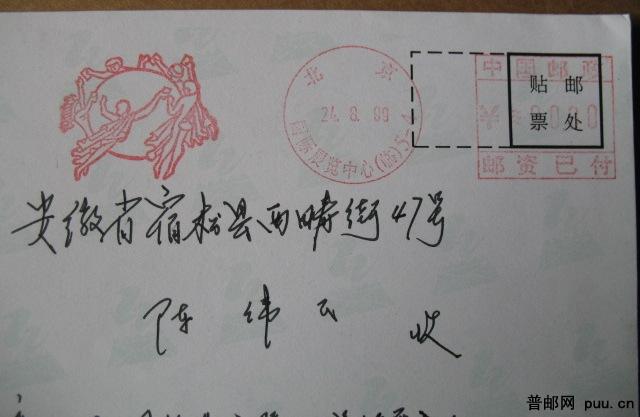 北京
24.8.99
国际展览中心(临)57-4
中国邮政
贴邮
票处
邮资已付
安徽省宿松县西畴街47号
陈纬民 收
普邮网 puu.cn